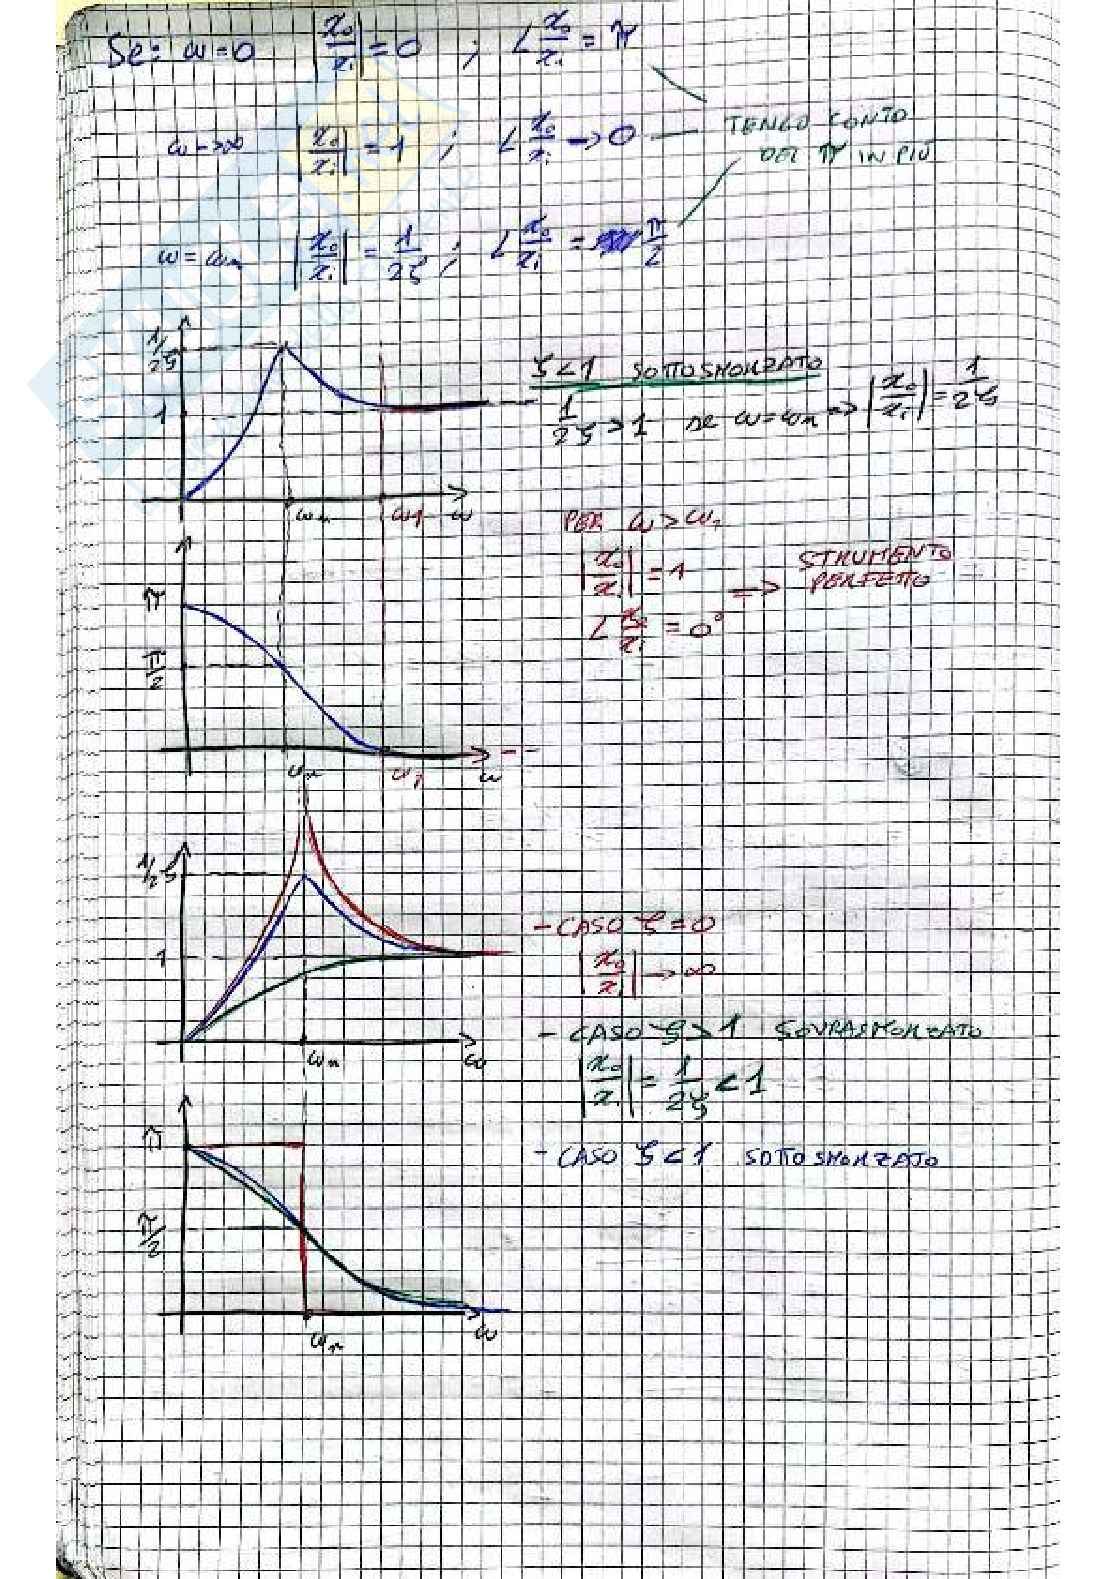 Se: ω=0 |x₀/xᵢ|=0 ; ∠x₀/xᵢ = π
ω→∞ |x₀/xᵢ|=1 ; ∠x₀/xᵢ → 0
TENGO CONTO
DEL π IN PIÙ
ω=ωₙ |x₀/xᵢ| = 1/2ζ ; ∠x₀/xᵢ = π/2
1/2ζ
1
ωₙ ω1 ω
ζ<1 SOTTOSMORZATO
1/2ζ >1 se ω=ωₙ => |x₀/xᵢ| = 1/2ζ
PER ω > ω₁
|x₀/xᵢ| = 1
∠x₀/xᵢ = 0°
=> STRUMENTO
PERFETTO
π
π/2
ωₙ ω₁ ω
1/2ζ
1
ωₙ ω
- CASO ζ=0
|x₀/xᵢ| → ∞
- CASO ζ>1 SOVRASMORZATO
|x₀/xᵢ| = 1/2ζ < 1
- CASO ζ<1 SOTTOSMORZATO
π
π/2
ωₙ ω